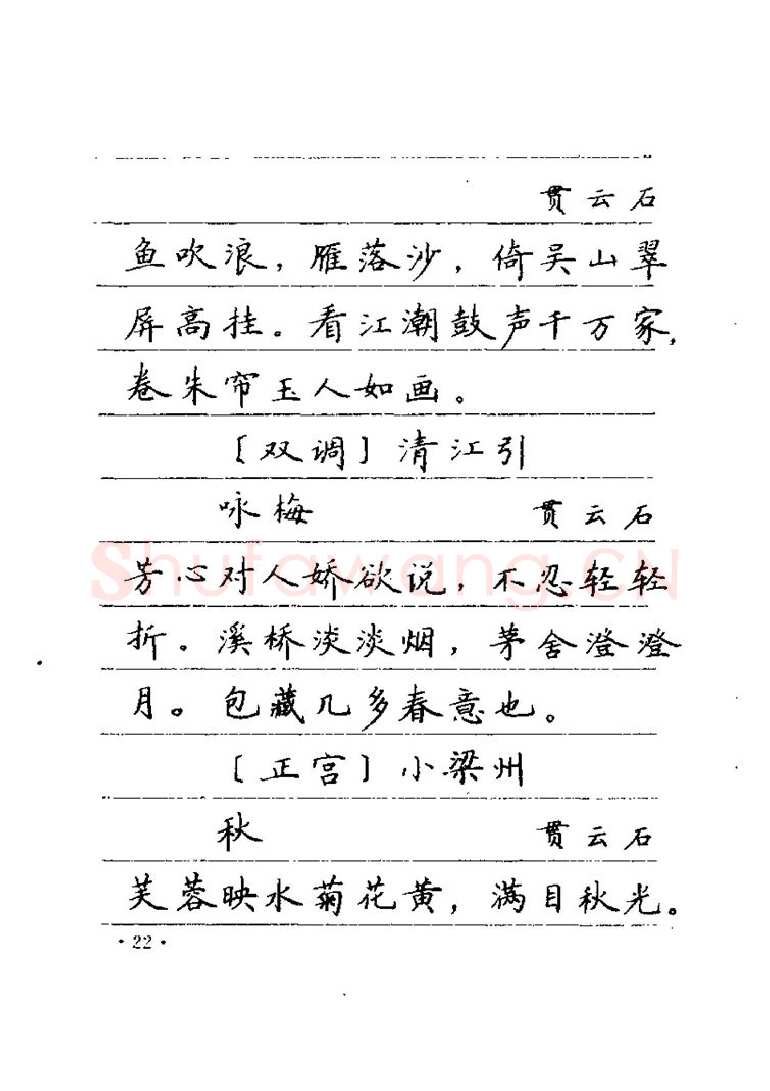 贯云石
鱼吹浪，雁落沙，倚吴山翠
屏高挂。看江潮鼓声千万家，
卷朱帘玉人如画。
〔双调〕清江引
咏梅 贯云石
芳心对人娇欲说，不忍轻轻
折。溪桥淡淡烟，茅舍澄澄
月。包藏几多春意也。
〔正宫〕小梁州
秋 贯云石
芙蓉映水菊花黄，满目秋光。
·22·
Shufawang.CN